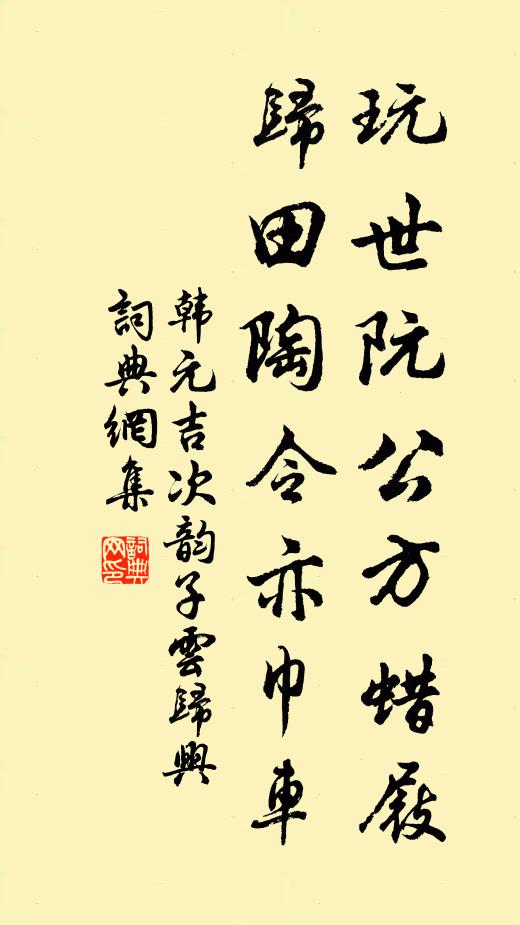 玩世阮公方蜡屐
歸田陶令亦巾車
韩元吉次韵子雲歸興
詞典網集
詞典网印